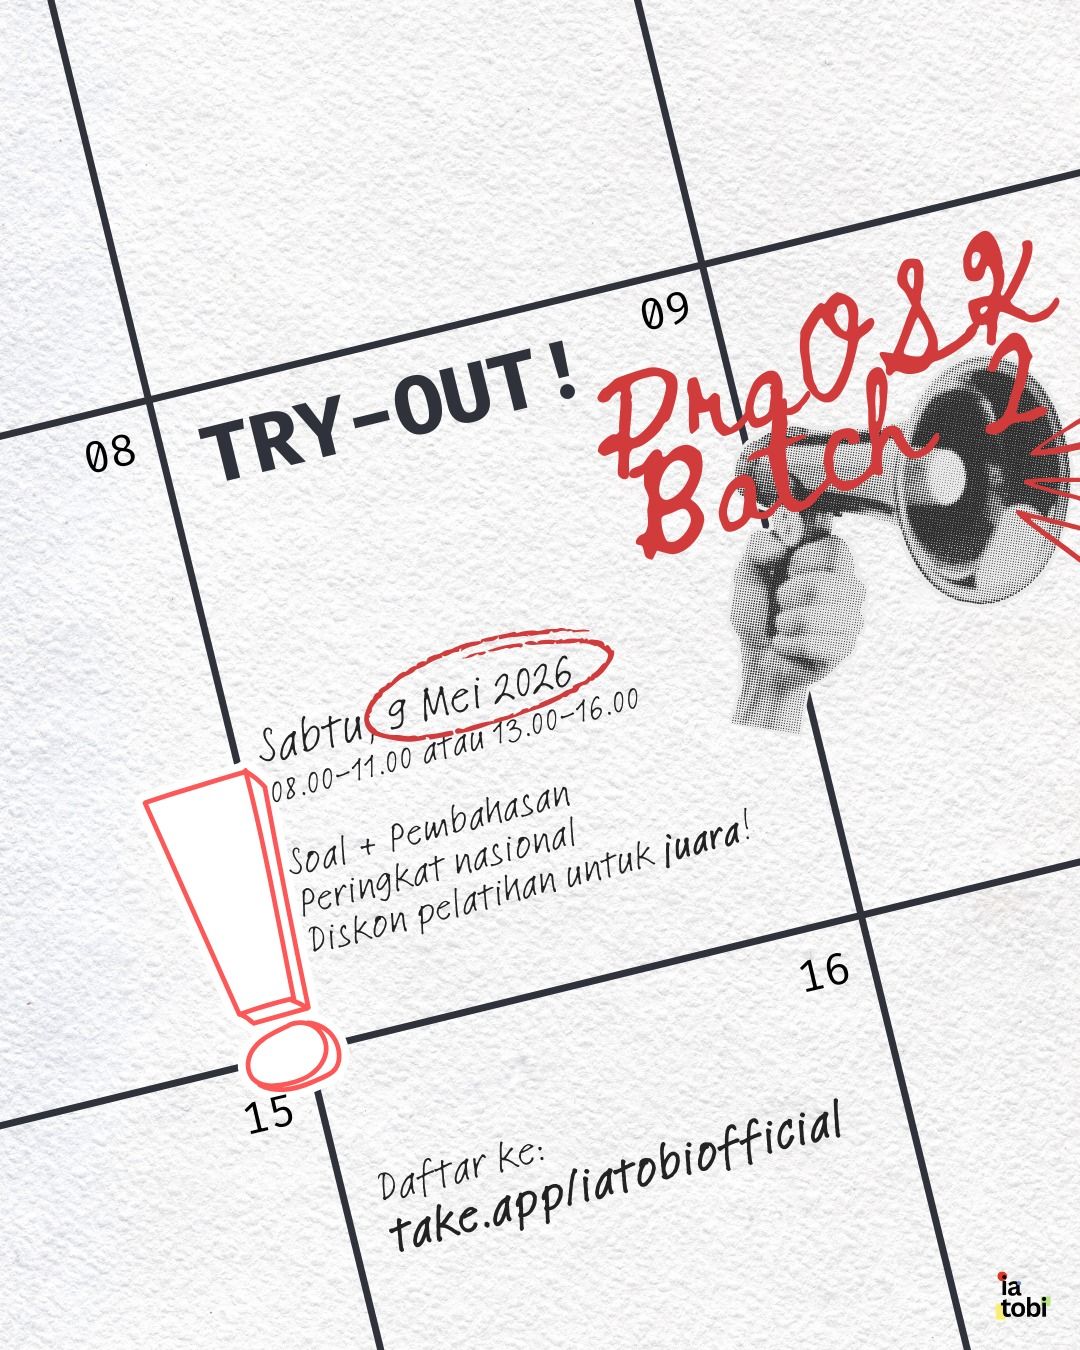 09
TRY-OUT!
PraOSK
Batch 2
08
Sabtu, 9 Mei 2026
08.00-11.00 atau 13.00-16.00
Soal + Pembahasan
Peringkat nasional
Diskon pelatihan untuk juara!
16
15
Daftar ke:
take.app/iatobiofficial
ia
tobi